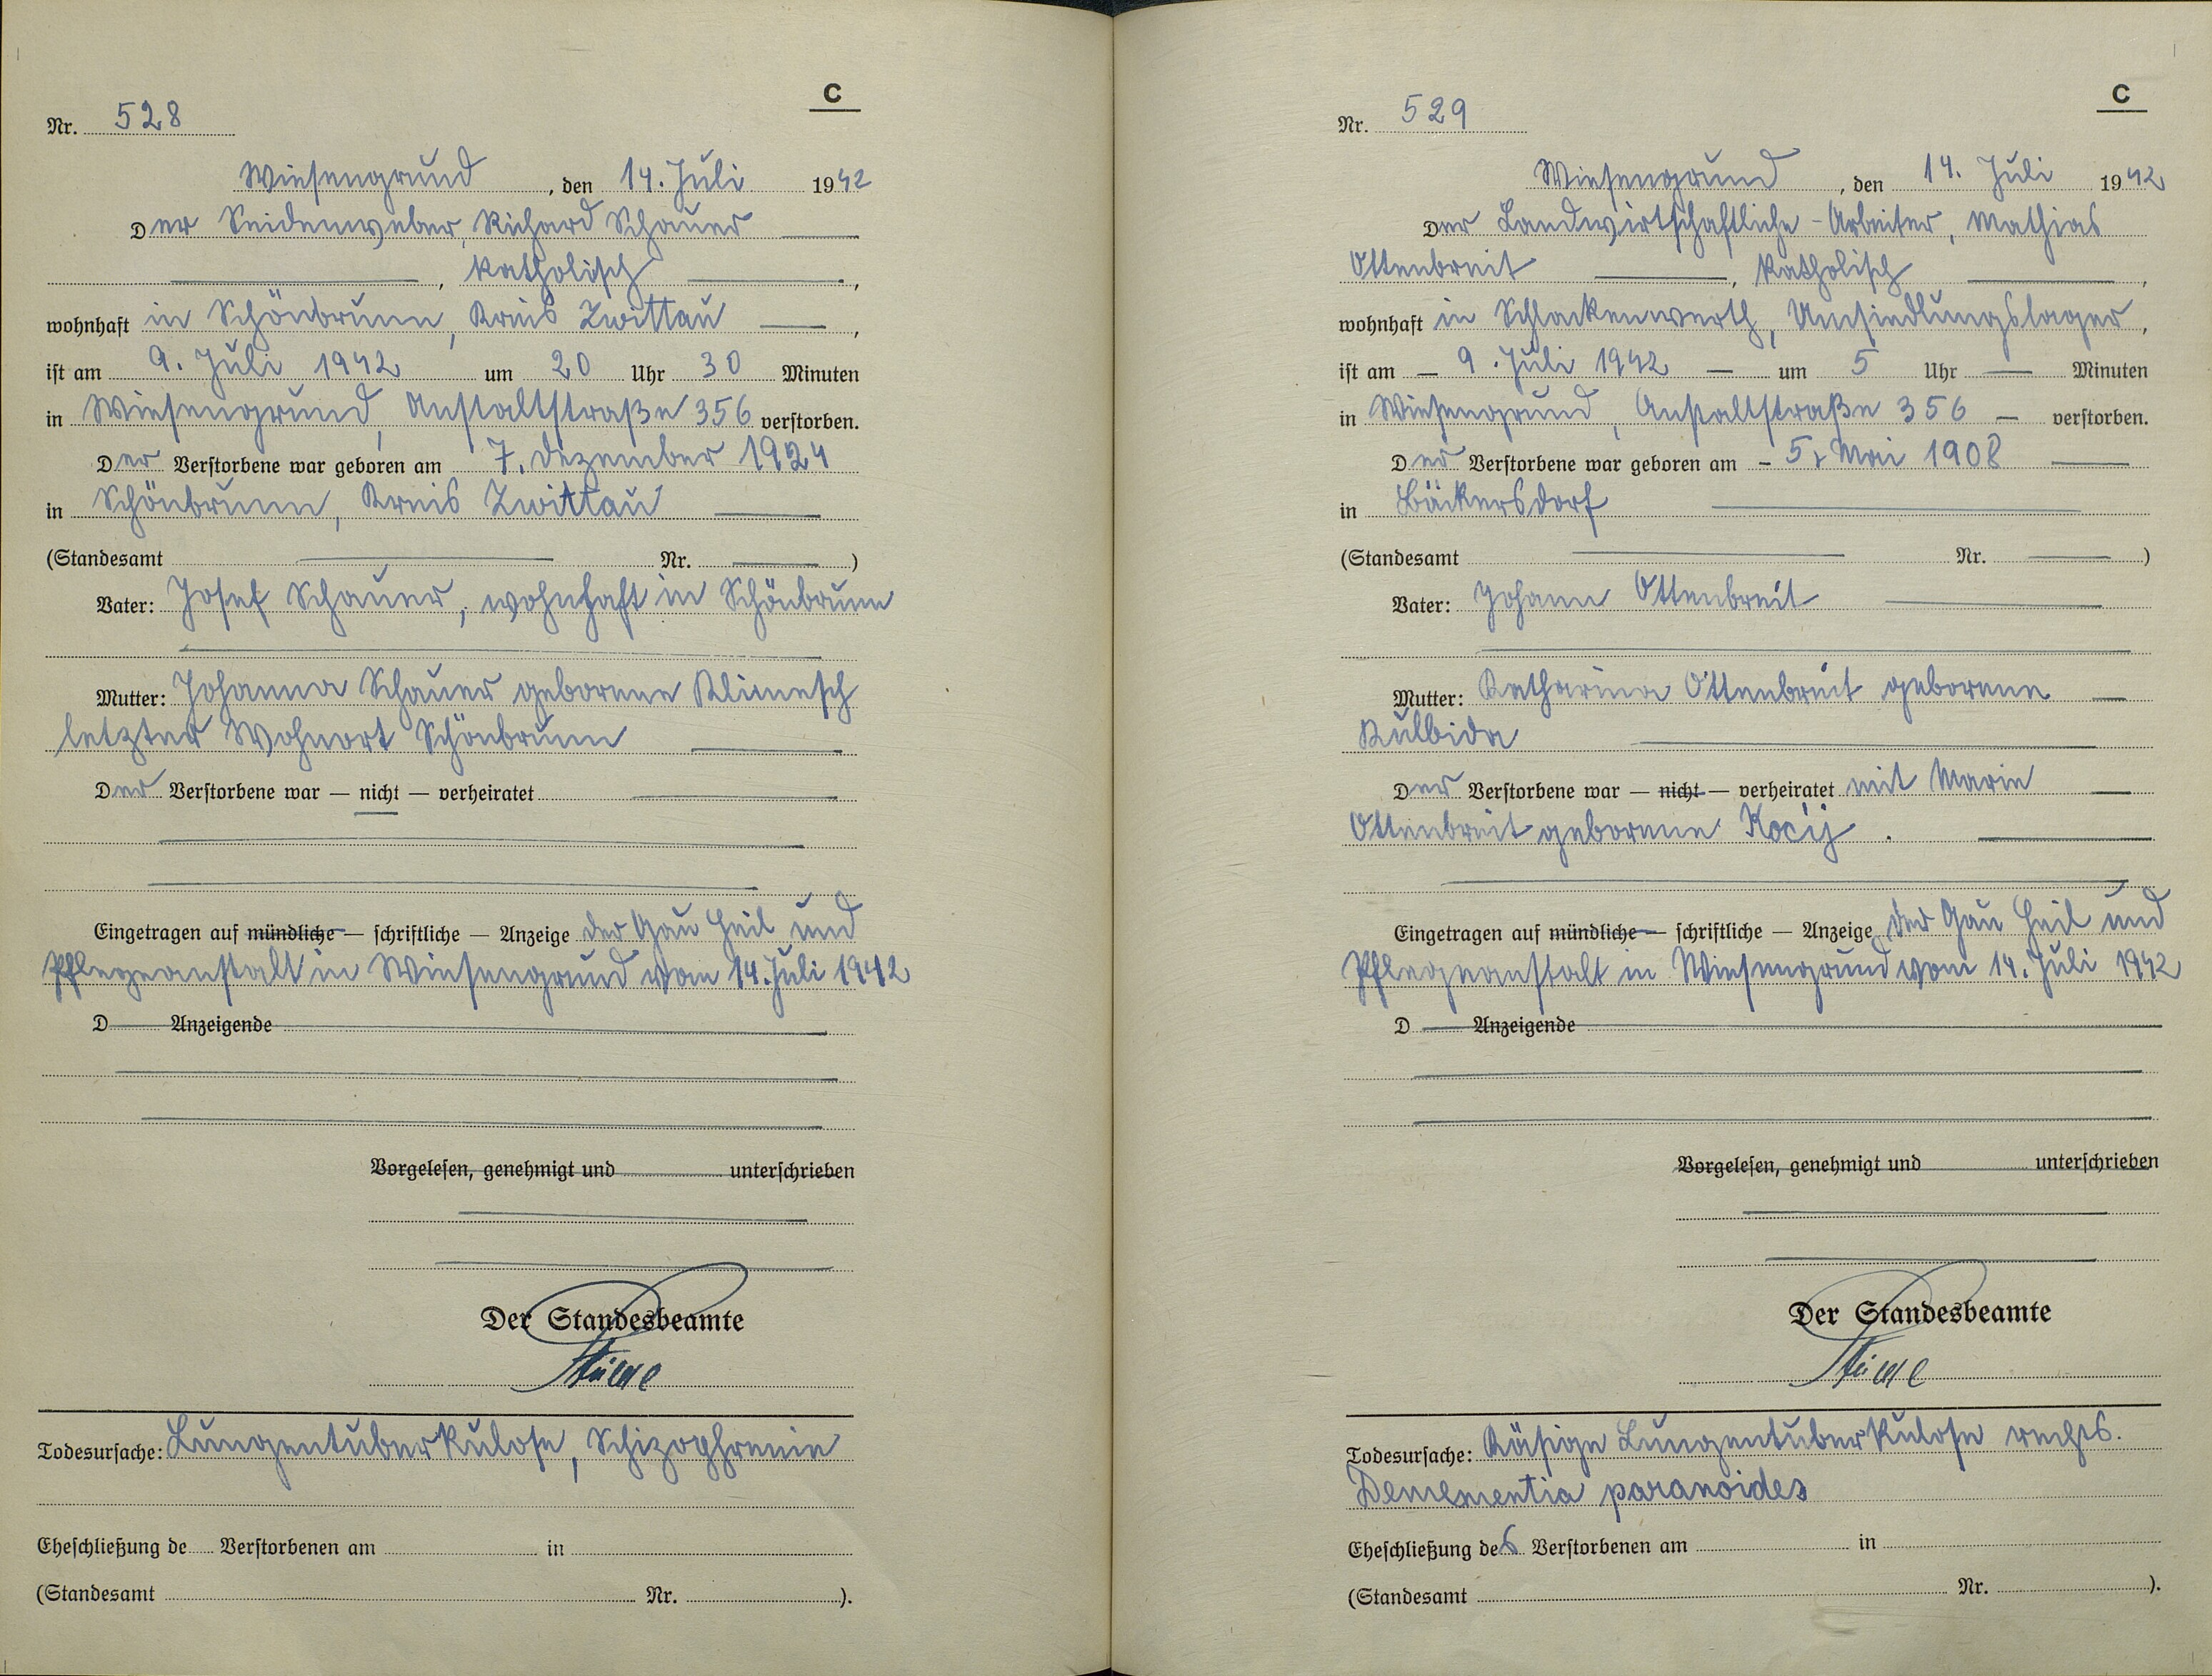 C
Nr. 528
Wiesengrund, den 14. Juli 1942
Der Seidenweber, Richard Schauer
, katholisch,
wohnhaft in Schönbrunn, Kreis Zwittau,
ist am 9. Juli 1942 um 20 Uhr 30 Minuten
in Wiesengrund, Anstaltstraße 356 verstorben.
Der Verstorbene war geboren am 7. Dezember 1924
in Schönbrunn, Kreis Zwittau
(Standesamt Nr. )
Vater: Josef Schauer, wohnhaft in Schönbrunn
Mutter: Johanna Schauer geborene Klimesch
letzter Wohnort Schönbrunn
Der Verstorbene war — nicht — verheiratet
Eingetragen auf mündliche — schriftliche — Anzeige der Gau Heil und
Pflegeanstalt in Wiesengrund vom 14. Juli 1942
D Anzeigende
Vorgelesen, genehmigt und unterschrieben
Der Standesbeamte
Todesursache: Lungentuberkulose, Schizophrenie
Eheschließung de Verstorbenen am in
(Standesamt Nr. ).
C
Nr. 529
Wiesengrund, den 14. Juli 1942
Der Landwirtschaftliche-Arbeiter, Mathias
Ottenbreit, katholisch,
wohnhaft in Schlackenwerth, Umsiedlungslager,
ist am — 9. Juli 1942 — um 5 Uhr — Minuten
in Wiesengrund, Anstaltstraße 356 — verstorben.
Der Verstorbene war geboren am - 5. Mai 1908
in Bäckersdorf
(Standesamt Nr. )
Vater: Johann Ottenbreit
Mutter: Katharina Ottenbreit geborene
Kulbida
Der Verstorbene war — nicht — verheiratet mit Marie
Ottenbreit geborene Kocij.
Eingetragen auf mündliche — schriftliche — Anzeige der Gau Heil und
Pflegeanstalt in Wiesengrund vom 14. Juli 1942
D Anzeigende
Vorgelesen, genehmigt und unterschrieben
Der Standesbeamte
Todesursache: Käsige Lungentuberkulose rechts.
Demementia paranoides
Eheschließung des Verstorbenen am in
(Standesamt Nr. ).